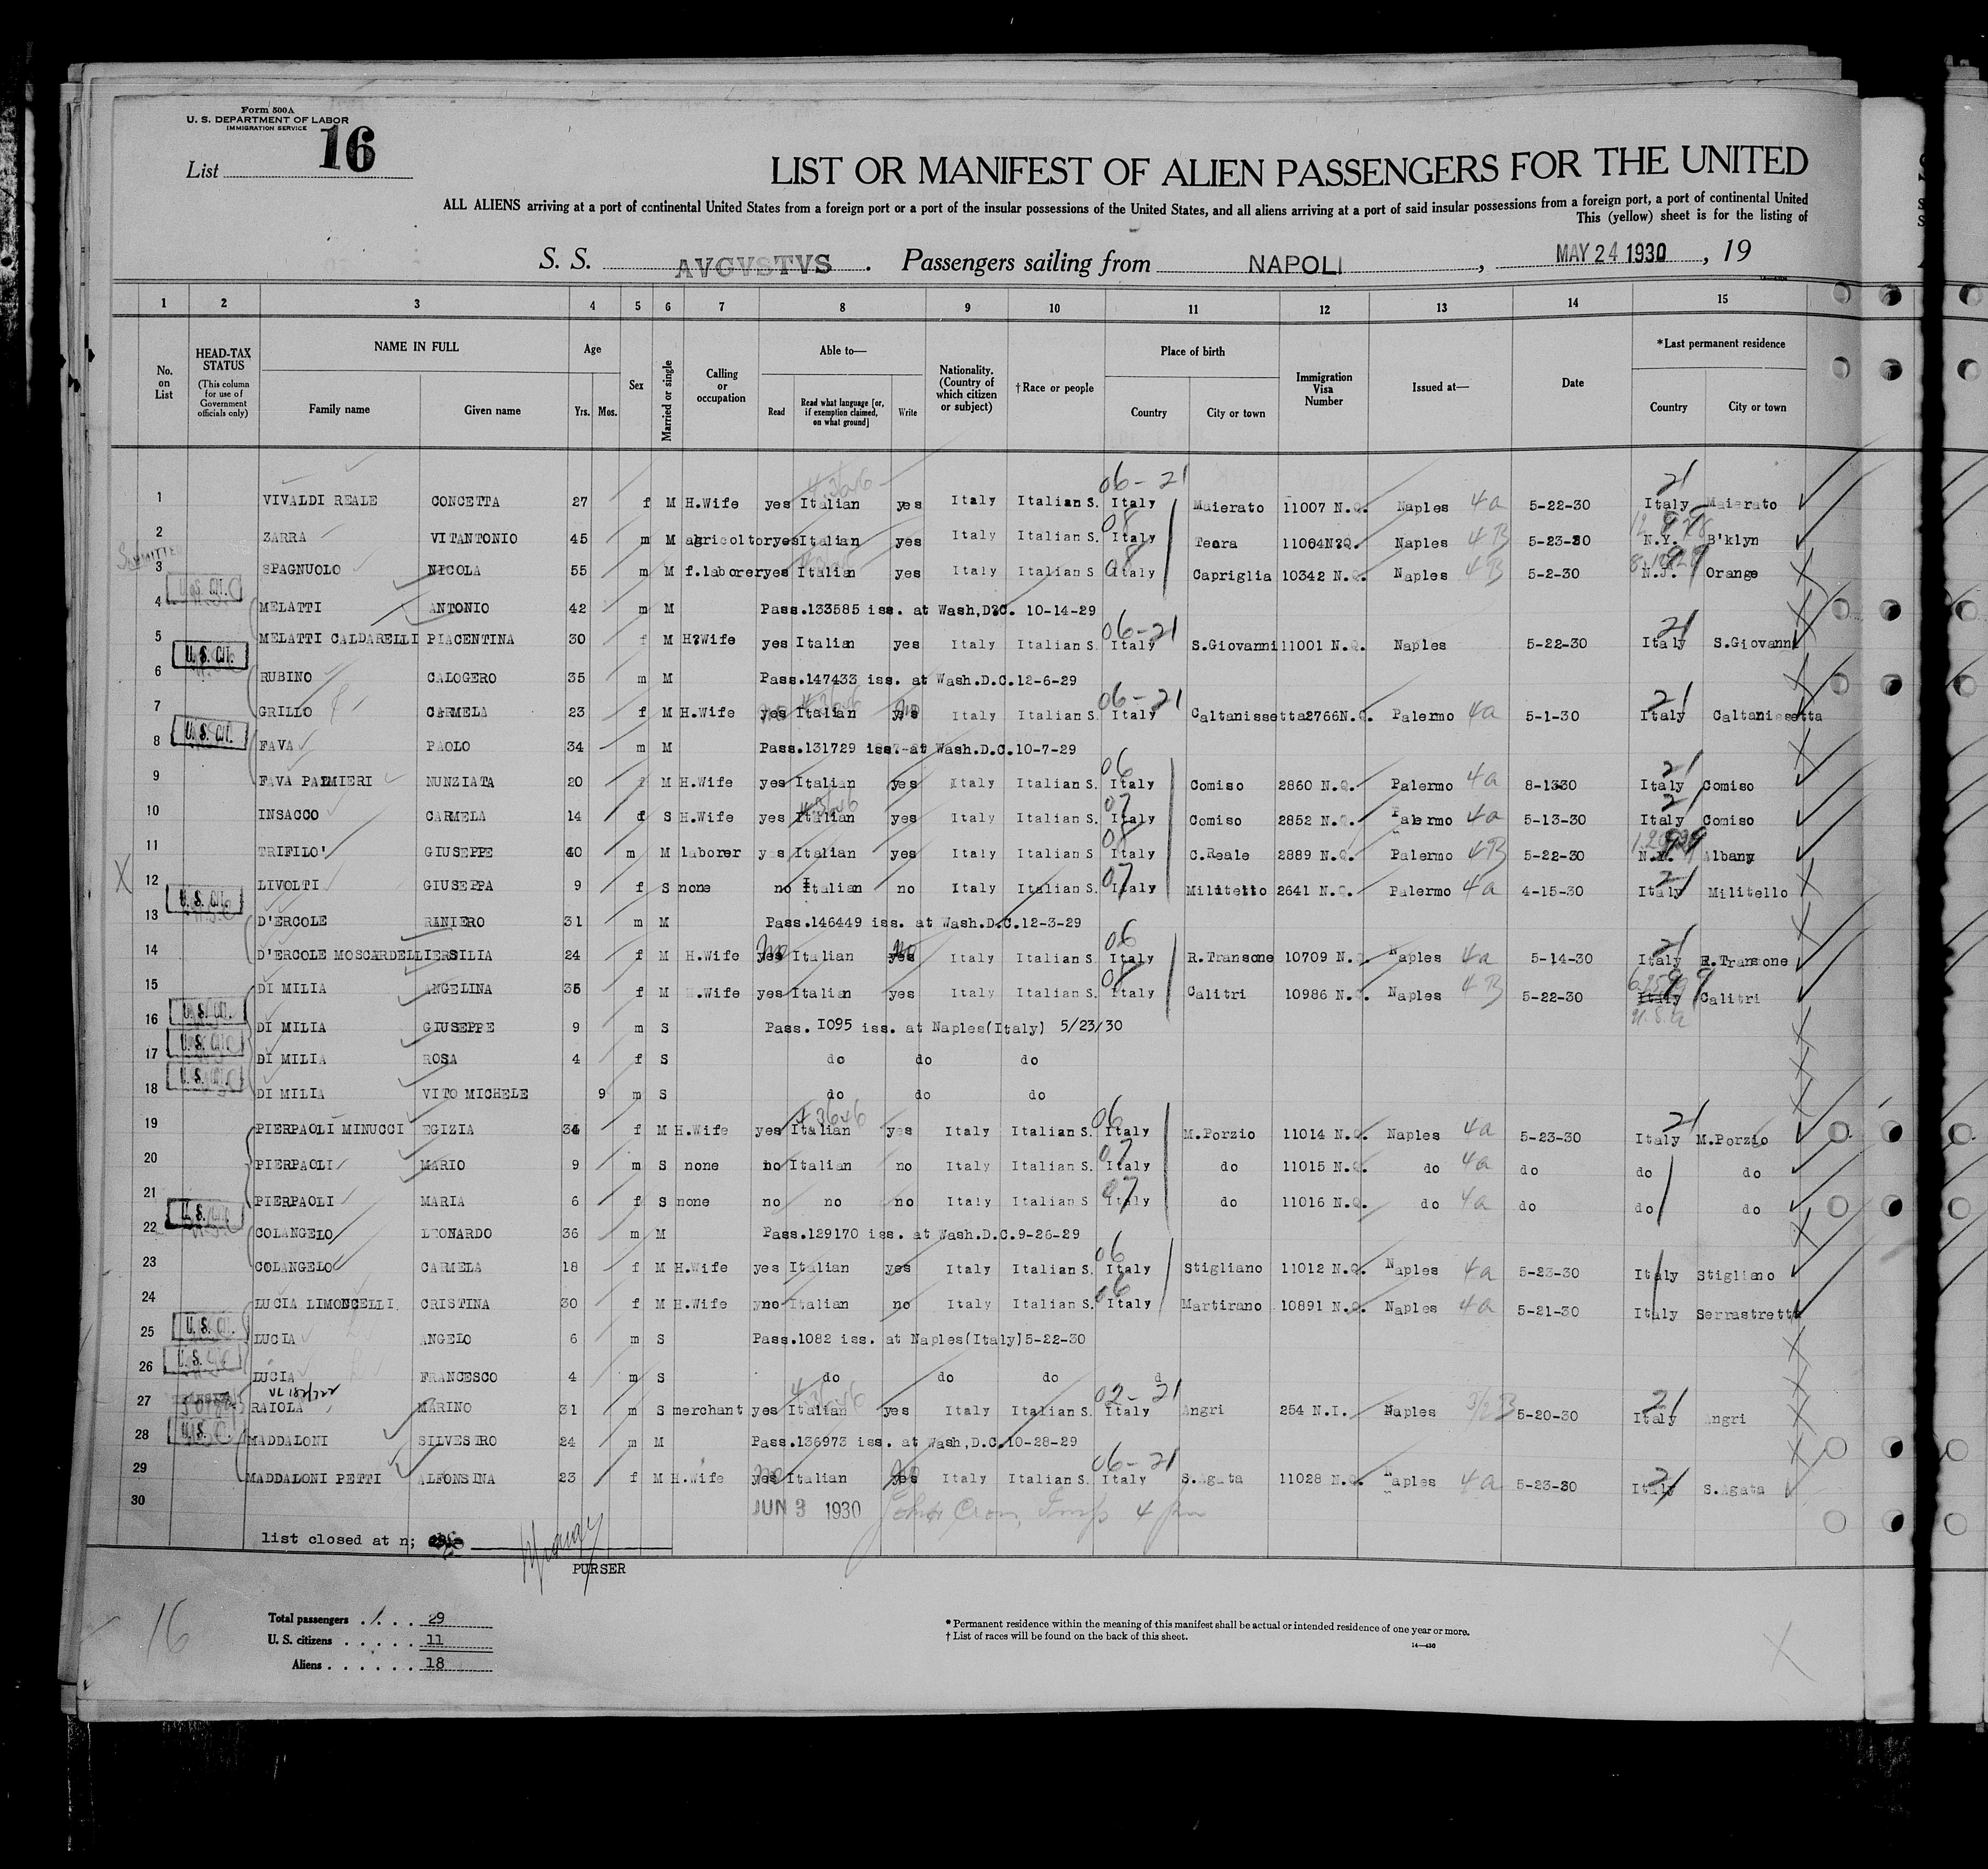 Form 500A
U. S. DEPARTMENT OF LABOR
IMMIGRATION SERVICE
List 16
LIST OR MANIFEST OF ALIEN PASSENGERS FOR THE UNITED
ALL ALIENS arriving at a port of continental United States from a foreign port or a port of the insular possessions of the United States, and all aliens arriving at a port of said insular possessions from a foreign port, a port of continental United
This (yellow) sheet is for the listing of
S. S. AVGVSTVS. Passengers sailing from NAPOLI, MAY 24 1930, 19
1 2 3 4 5 6 7 8 9 10 11 12 13 14 15
No. on List HEAD-TAX STATUS (This column for use of Government officials only) NAME IN FULL Family name Given name Age Yrs. Mos. Sex Married or single Calling or occupation Able to— Read Read what language [or, if exemption claimed, on what ground] Write Nationality. (Country of which citizen or subject) †Race or people Place of birth Country City or town Immigration Visa Number Issued at— Date *Last permanent residence Country City or town
06-21 21
1 VIVALDI REALE CONCETTA 27 f M H.Wife yes Italian yes Italy Italian S. Italy Maierato 11007 N.Q. Naples 4a 5-22-30 Italy Maierato
2 ZARRA VITANTONIO 45 m M agricoltor yes Italian yes Italy Italian S. Italy Teora 11064N?Q. Naples 4B 5-23-30 N.Y. B'klyn
3 SPAGNUOLO NICOLA 55 m M f.laborer yes Italian yes Italy Italian S Italy Capriglia 10342 N.Q. Naples 4B 5-2-30 N.J. Orange
U.S. CIT.
4 MELATTI ANTONIO 42 m M Pass.133585 iss. at Wash,D?C. 10-14-29
06-21 21
5 MELATTI CALDARELLI PIACENTINA 30 f M H?Wife yes Italian yes Italy Italian S. Italy S.Giovanni 11001 N.Q. Naples 5-22-30 Italy S.Giovanni
U.S. CIT.
6 RUBINO CALOGERO 35 m M Pass.147433 iss. at Wash.D.C.12-6-29
06-21 21
7 GRILLO CARMELA 23 f M H.Wife yes Italian yes Italy Italian S. Italy Caltanissetta 2766N.Q. Palermo 4a 5-1-30 Italy Caltanissetta
U.S. CIT.
8 FAVA PAOLO 34 m M Pass.131729 iss.-at Wash.D.C.10-7-29
06 21
9 FAVA PALMIERI NUNZIATA 20 f M H.Wife yes Italian yes Italy Italian S. Italy Comiso 2860 N.Q. Palermo 4a 8-1330 Italy Comiso
07 21
10 INSACCO CARMELA 14 f S H.Wife yes Italian yes Italy Italian S. Italy Comiso 2852 N.Q. Palermo 4a 5-13-30 Italy Comiso
11 TRIFILO' GIUSEPPE 40 m M laborer yes Italian yes Italy Italian S Italy C.Reale 2889 N.Q. Palermo 4B 5-22-30 N.Y. Albany
07 21
12 LIVOLTI GIUSEPPA 9 f S none no Italian no Italy Italian S. Italy Militello 2641 N.Q. Palermo 4a 4-15-30 Italy Militello
U.S. CIT.
13 D'ERCOLE RANIERO 31 m M Pass.146449 iss. at Wash.D.C.12-3-29
06 21
14 D'ERCOLE MOSCARDELLI ERSILIA 24 f M H.Wife yes no Italian yes no Italy Italian S. Italy R.Transone 10709 N.Q. Naples 4a 5-14-30 Italy R.Transone
15 DI MILIA ANGELINA 35 f M H.Wife yes Italian yes Italy Italian S. Italy Calitri 10986 N.Q. Naples 4B 5-22-30 Italy Calitri
U.S.a
U.S. CIT.
16 DI MILIA GIUSEPPE 9 m S Pass. I095 iss. at Naples(Italy) 5/23/30
U.S. CIT.
17 DI MILIA ROSA 4 f S do do do
U.S. CIT.
18 DI MILIA VITO MICHELE 9 m S do do do
43646 06 21
19 PIERPAOLI MINUCCI EGIZIA 34 f M H.Wife yes Italian yes Italy Italian S. Italy M.Porzio 11014 N.Q. Naples 4a 5-23-30 Italy M.Porzio
07
20 PIERPAOLI MARIO 9 m S none no Italian no Italy Italian S. Italy do 11015 N.Q. do 4a do do do
07
21 PIERPAOLI MARIA 6 f S none no no no Italy Italian S Italy do 11016 N.Q. do 4a do do do
U.S. CIT.
22 COLANGELO LEONARDO 36 m M Pass.129170 iss. at Wash.D.C.9-26-29
06
23 COLANGELO CARMELA 18 f M H.Wife yes Italian yes Italy Italian S. Italy Stigliano 11012 N.Q. Naples 4a 5-23-30 Italy Stigliano
06
24 LUCIA LIMONCELLI CRISTINA 30 f M H.Wife no Italian no Italy Italian S. Italy Martirano 10891 N.Q. Naples 4a 5-21-30 Italy Serrastretta
U.S. CIT.
25 LUCIA ANGELO 6 m S Pass.1082 iss. at Naples(Italy)5-22-30
U.S.
26 LUCIA FRANCESCO 4 m S do do do d
02-21 21
27 RAIOLA MARINO 31 m S merchant yes Italian yes Italy Italian S. Italy Angri 254 N.I. Naples 5-20-30 Italy Angri
U.S.
28 MADDALONI SILVESTRO 24 m M Pass.136973 iss. at Wash,D.C.10-28-29
06-21 21
29 MADDALONI PETTI ALFONSINA 23 f M H.Wife yes Italian yes Italy Italian S. Italy S.Agata 11028 N.Q. Naples 4a 5-23-30 Italy S.Agata
30 JUN 3 1930
list closed at n;
PURSER
16
Total passengers 29
U. S. citizens 11
Aliens 18
* Permanent residence within the meaning of this manifest shall be actual or intended residence of one year or more.
† List of races will be found on the back of this sheet.
14—430